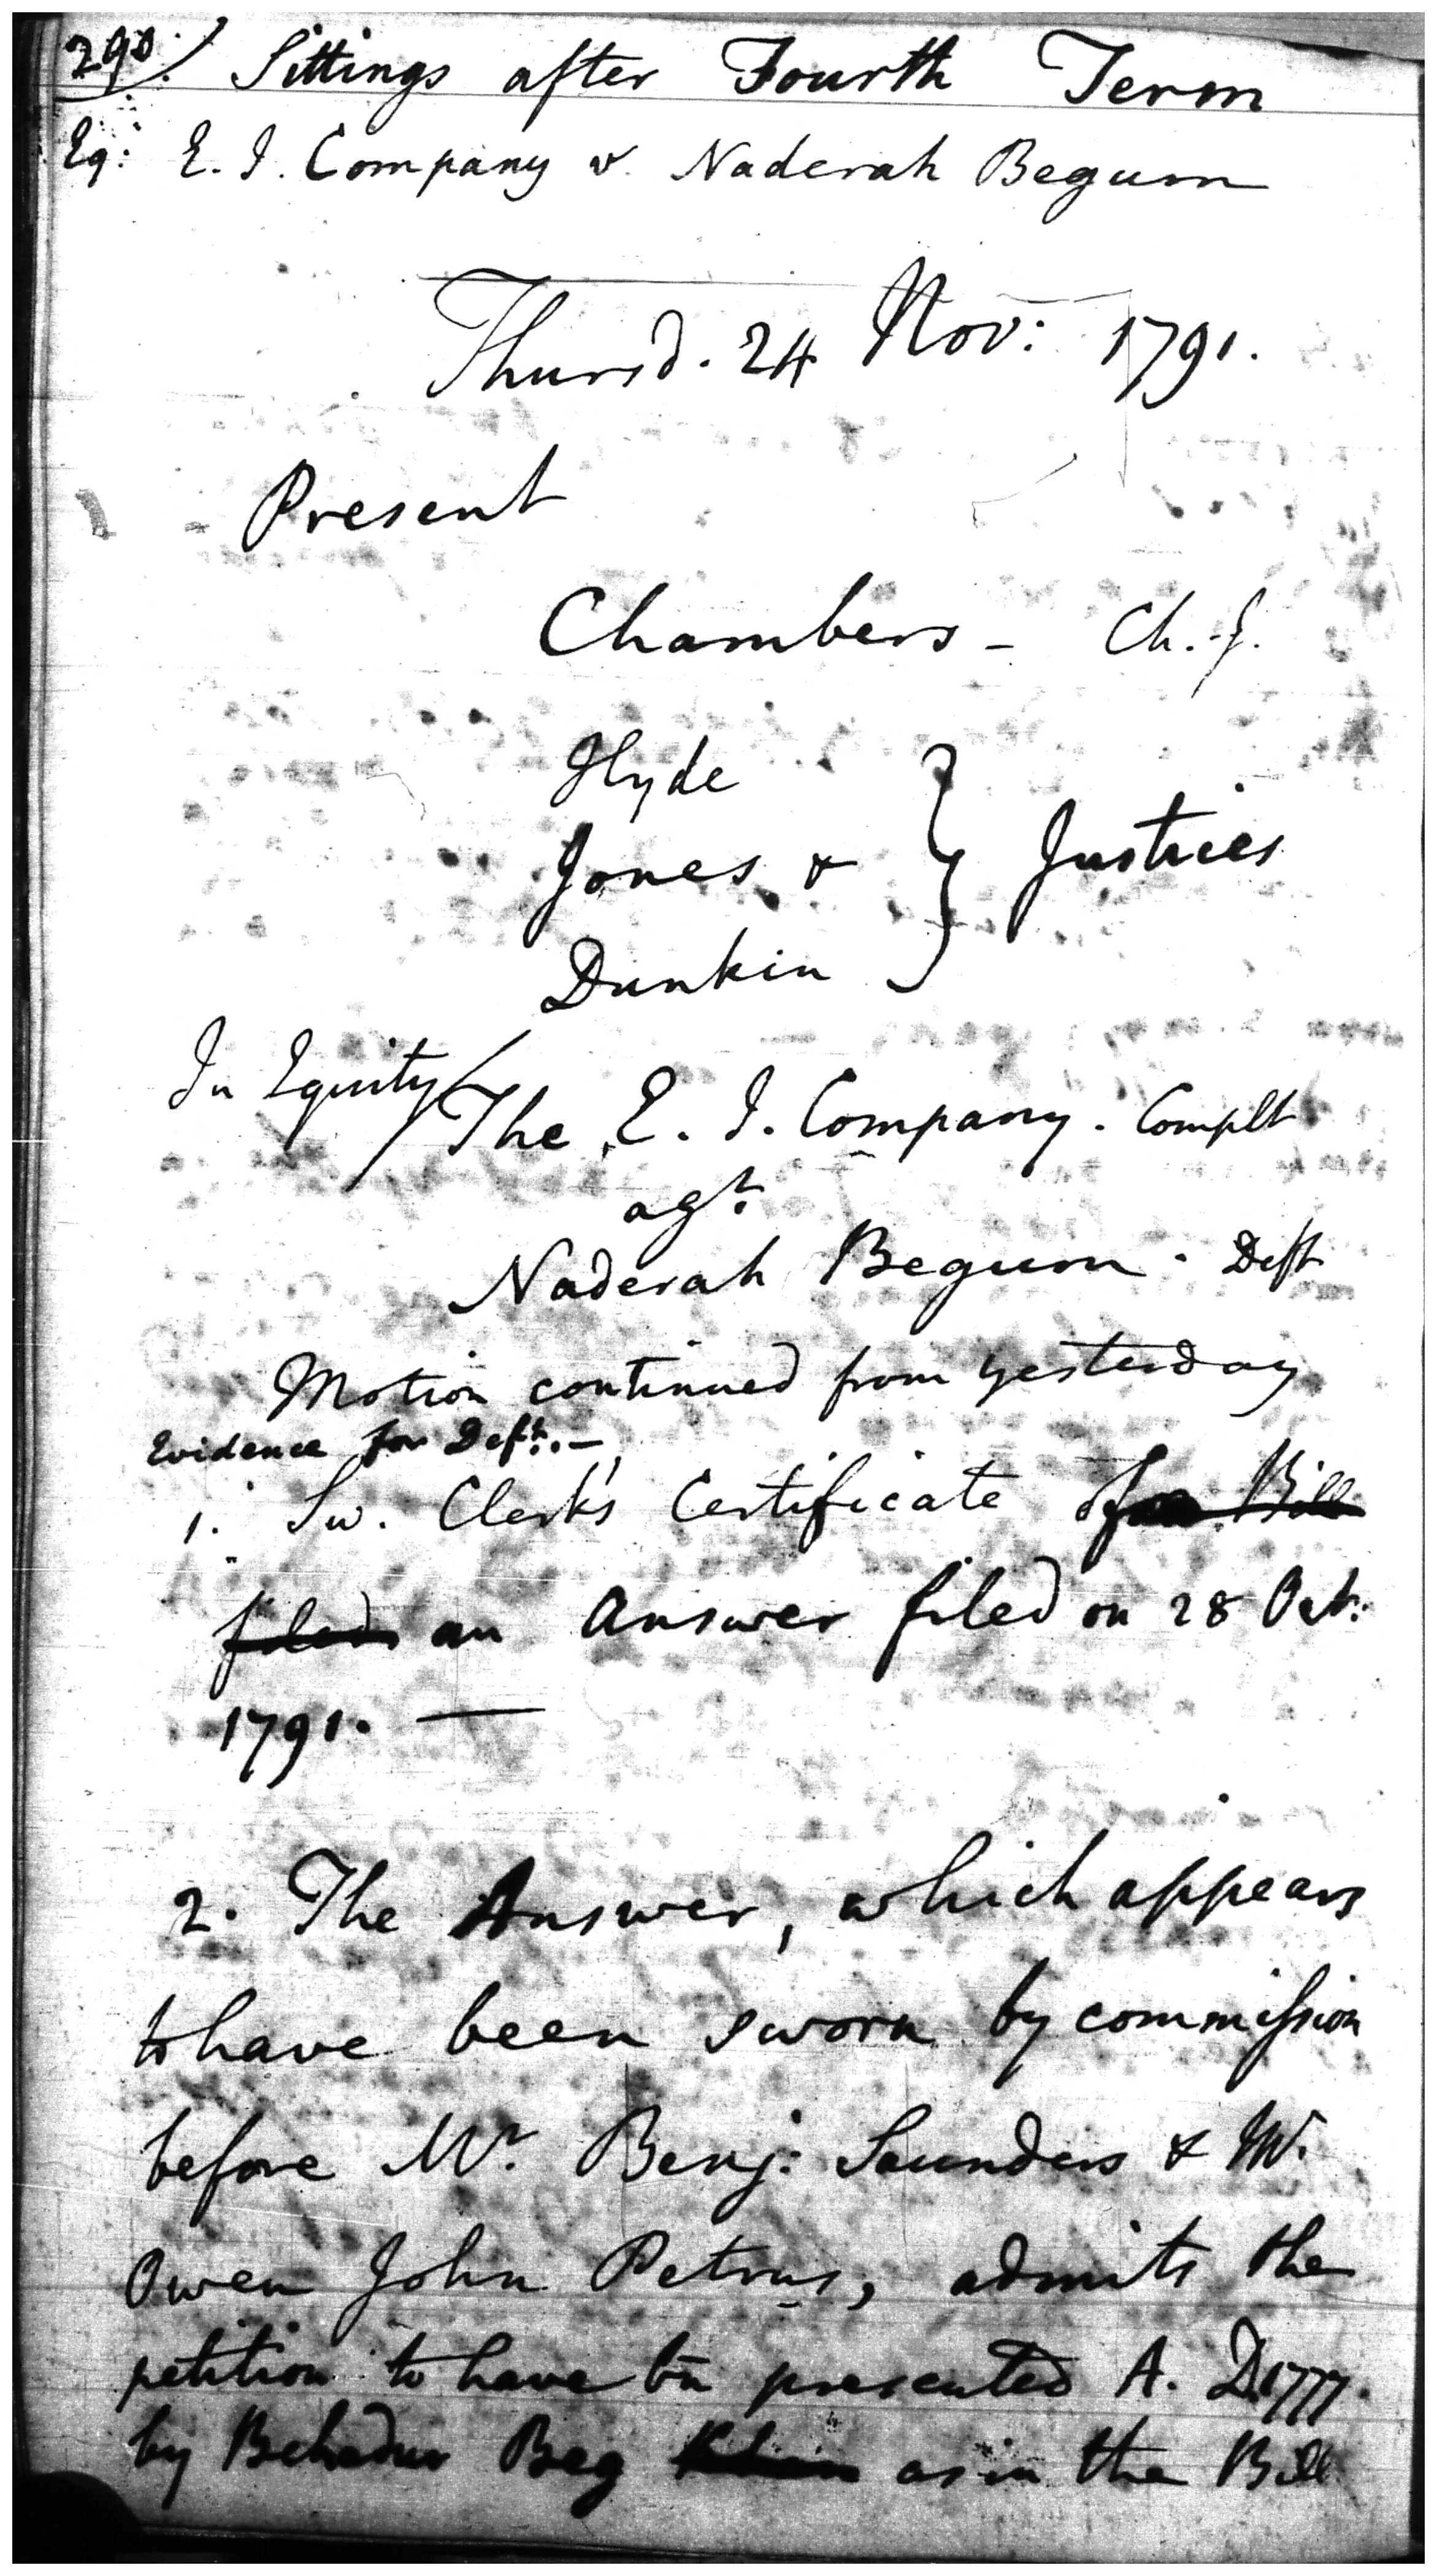 290. Sittings after Fourth Term
Eq: E. I. Company v. Naderah Begum
Thursd. 24 Nov: 1791.
Present
Chambers - Ch. J.
Hyde
Jones & } Justices
Dunkin
In Equity / The E. I. Company. Complt
agt.
Naderah Begum. Deft
Motion continued from yesterday
Evidence for Deft. -
1. Sw. Clerk's Certificate of an Bill
filed an Answer filed on 28 Oct:
1791. —
2. The Answer, which appears
to have been sworn by commission
before Mr. Benj: Saunders & Mr.
Owen John Petrus, admits the
petition to have bn presented A. D. 1777.
by Behadur Beg Khan as in the Bill